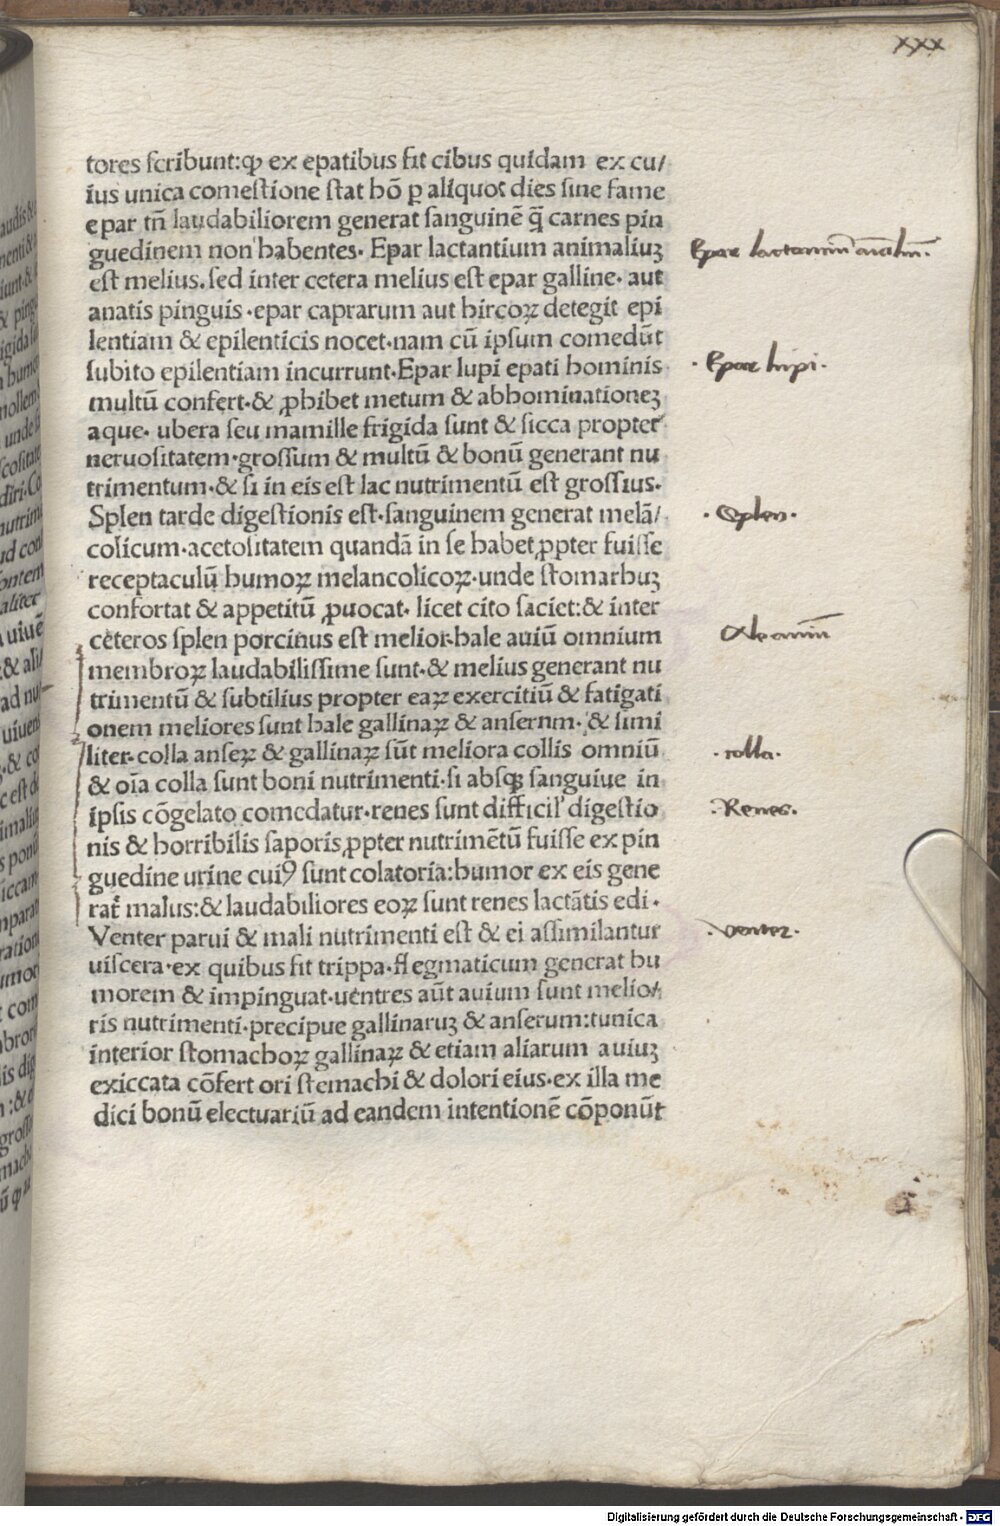 xxx
tores scribunt:ꝙ ex epatibus fit cibus quidam ex cu/
ius unica comestione stat hō ꝑ aliquot dies sine fame
epar tñ laudabiliorem generat sanguinē q̃ carnes pin
guedinem non habentes. Epar lactantium animaliuꝫ
Epar lactantium aīalium.
est melius. sed inter cetera melius est epar galline. aut
anatis pinguis .epar caprarum aut hircoꝝ detegit epi
lentiam & epilenticis nocet.nam cū ipsum comedūt
subito epilentiam incurrunt.Epar lupi epati hominis
. Epar lupi .
multū confert.& ꝓhibet metum & abhominationeꝫ
aque. ubera seu mamille frigida sunt & sicca propter
neruositatem.grossum & multū & bonū generant nu
trimentum.& si in eis est lac nutrimentū est grossius.
Splen tarde digestionis est.sanguinem generat melā/
. Splen .
colicum.acetositatem quandā in se habet ꝓpter fuisse
receptaculū humoꝝ melancolicoꝝ.unde stomachuꝫ
confortat & appetitū ꝓuocat. licet cito saciet:& inter
ceteros splen porcinus est melior.hale auiū omnium
Ale auium
membroꝝ laudabilissime sunt.& melius generant nu
trimentū & subtilius propter eaꝝ exercitiū & fatigati
onem meliores sunt hale gallinaꝝ & ansernm. & simi
liter.colla anseꝝ & gallinaꝝ sūt meliora collis omniū
. colla .
& oīa colla sunt boni nutrimenti.si absqꝫ sanguiue in
ipsis cōgelato comedatur.renes sunt difficil' digestio
. Renes .
nis & horribilis saporis ꝓpter nutrimētū fuisse ex pin
guedine urine cuiꝰ sunt colatoria:humor ex eis gene
rat̄ malus:& laudabiliores eoꝝ sunt renes lactātis edi.
Venter parui & mali nutrimenti est & ei assimilantur
. venter .
uiscera.ex quibus fit trippa.flegmaticum generat hu
morem & impinguat.uentres aūt auium sunt melio/
ris nutrimenti.precipue gallinaruꝫ & anserum:tunica
interior stomachoꝝ gallinaꝝ & etiam aliarum auiuꝫ
exiccata cōfert ori stemachi & dolori eius.ex illa me
dici bonū electuariū ad eandem intentionē cōponūt
Digitalisierung gefördert durch die Deutsche Forschungsgemeinschaft - DFG